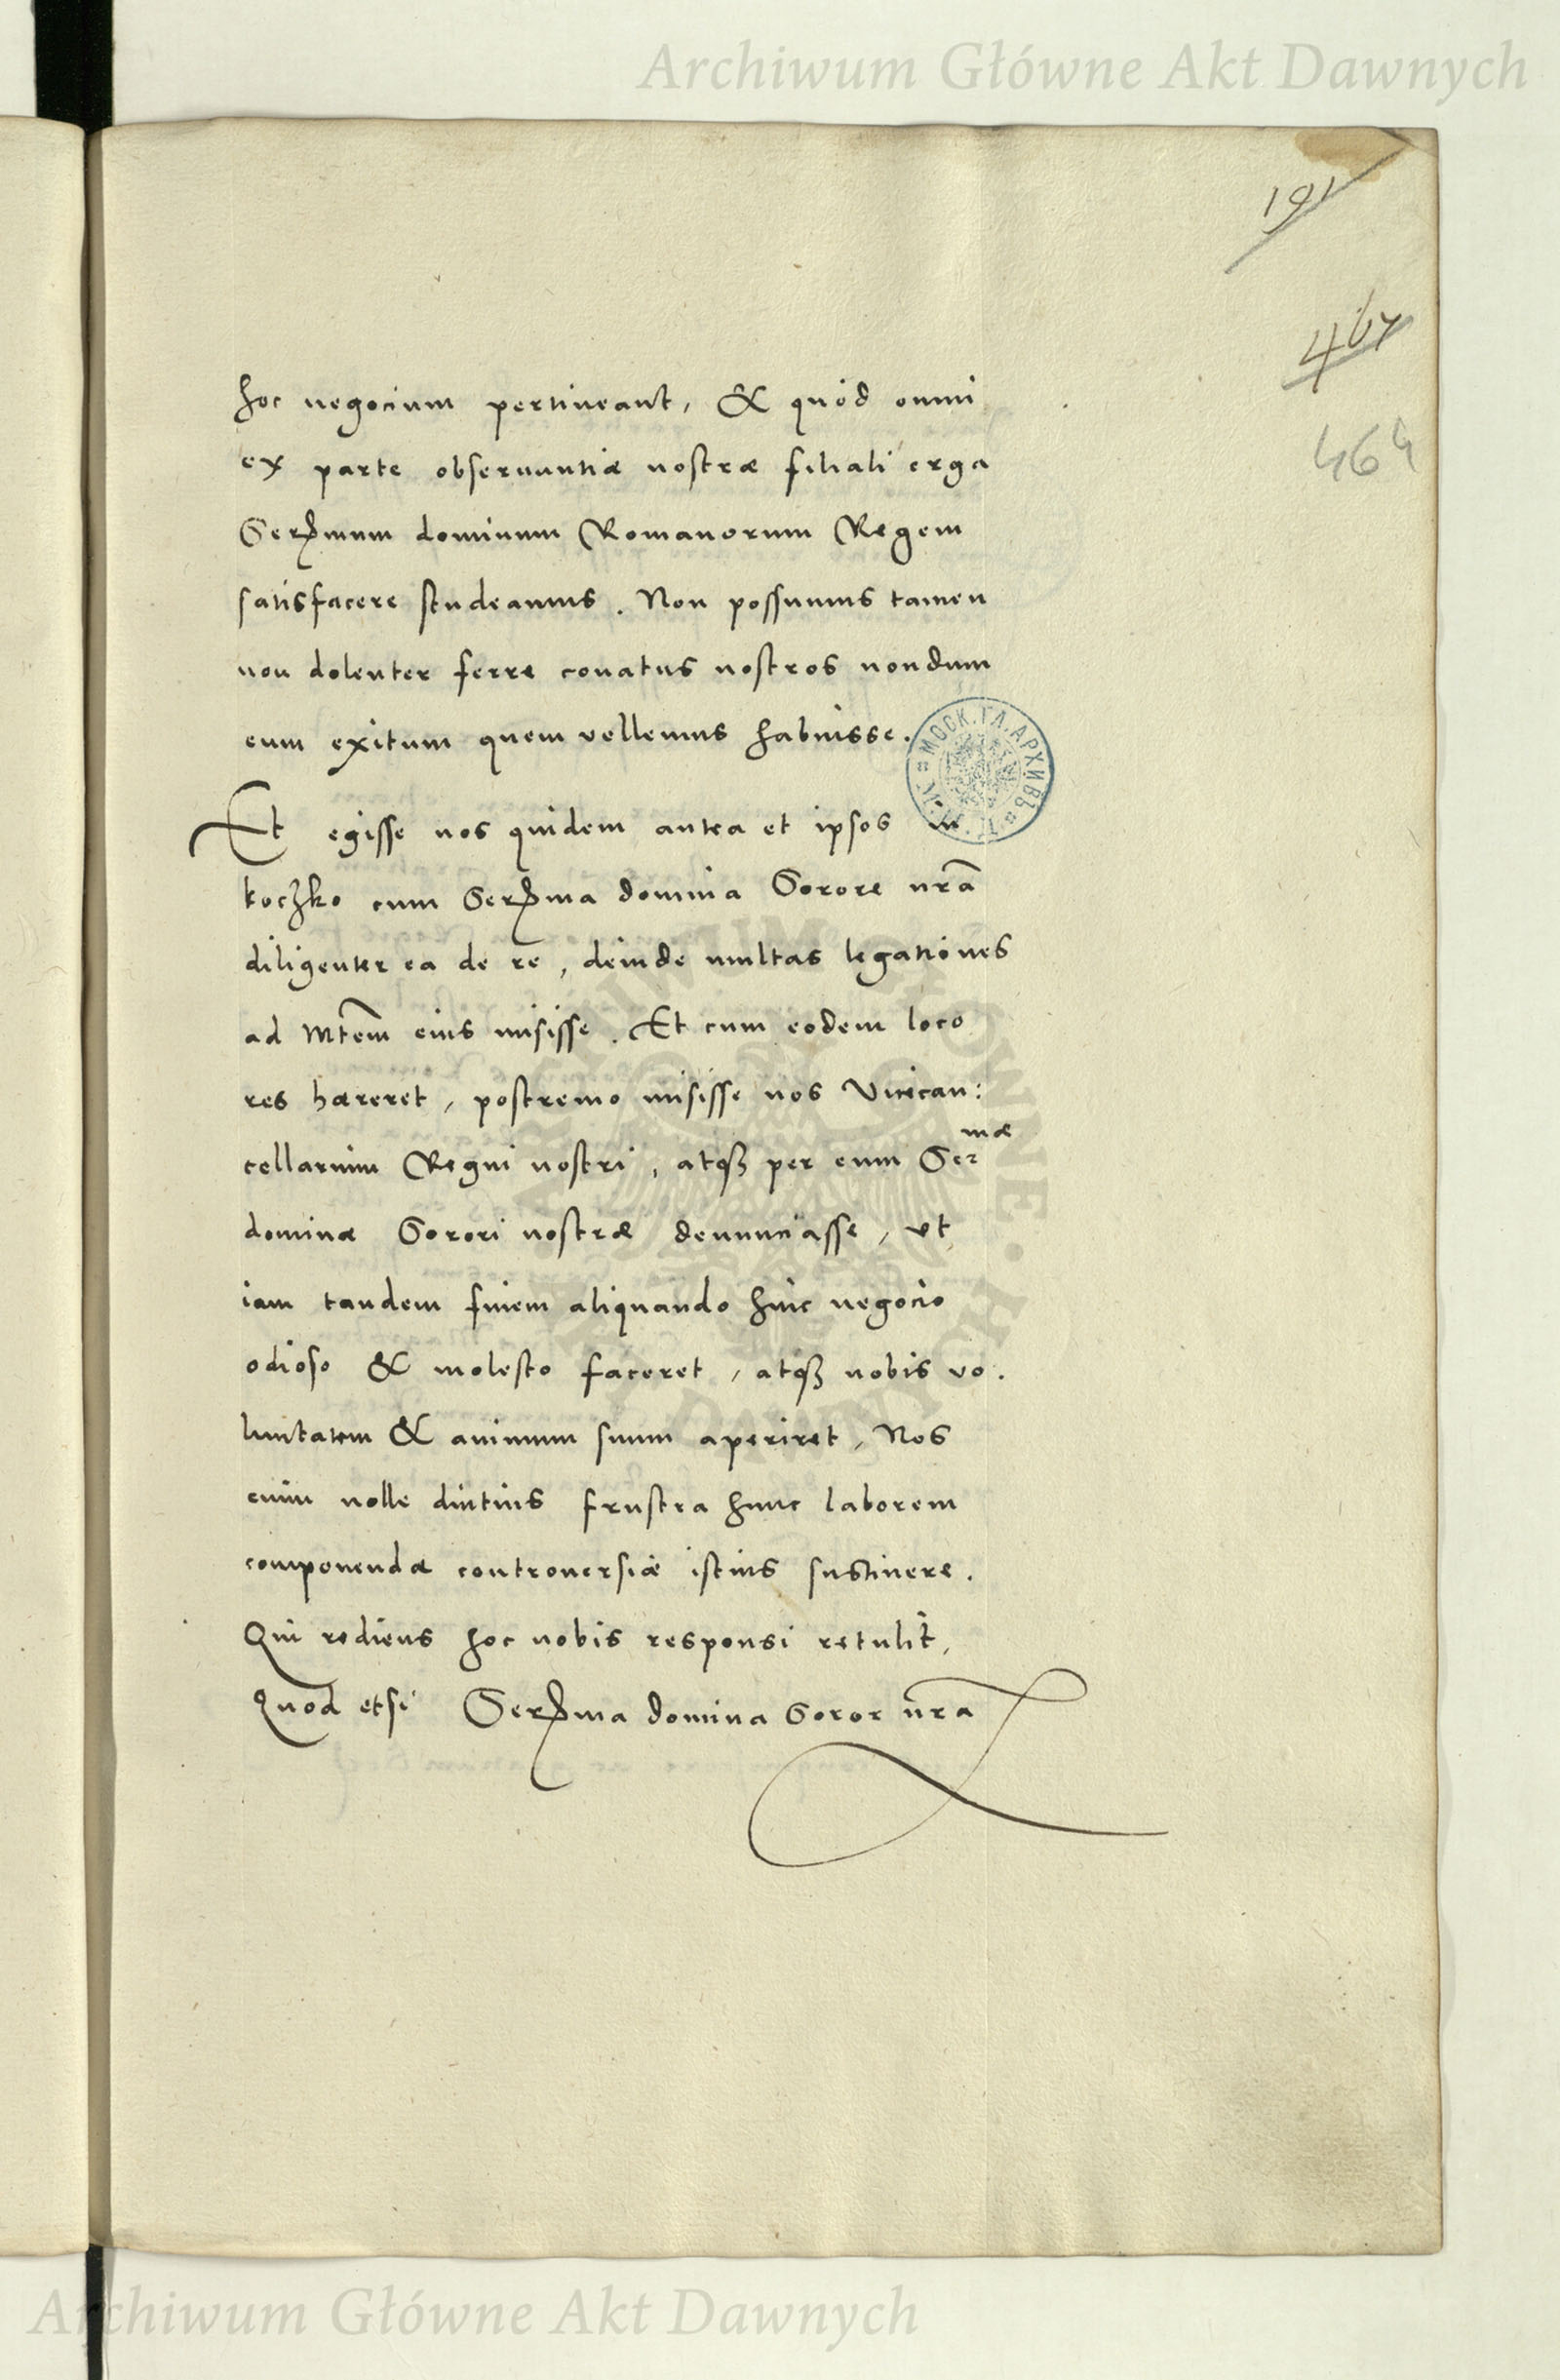 Archiwum Główne Akt Dawnych
191
467
464
hoc negocium pertineant, & quòd omni
ex parte obseruantiæ nostræ filiali erga
Serm̃um dominum Romanorum Regem
satisfacere studeamus. Non possumus tamen
non dolenter ferre conatus nostros nondum
eum exitum quem vellemus habuisse.
МОСК. ГЛ. АРХИВЪ
Et egisse nos quidem antea et ipsos in
koczko cum Serm̃a domina Sorore nrã
diligenter ea de re, deinde multas legationes
ad Mtem̃ eius misisse. Et cum eodem loco
res hæreret, postremo misisse nos Vicecan:
cellarium Regni nostri, atqȝ per eum Sermæ
dominæ Sorori nostræ denunciasse, vt
iam tandem finem aliquando huic negocio
odioso & molesto faceret, atqȝ nobis vo.
luntatem & animum suum aperiret, Nos
enim nolle diutius frustra hunc laborem
componendæ controuersiæ istius sustinere.
Qui rediens hoc nobis responsi retulit,
Quod etsi Serm̃a domina Soror nr̃a
ARCHIWUM GŁÓWNE AKT DAWNYCH
Archiwum Główne Akt Dawnych